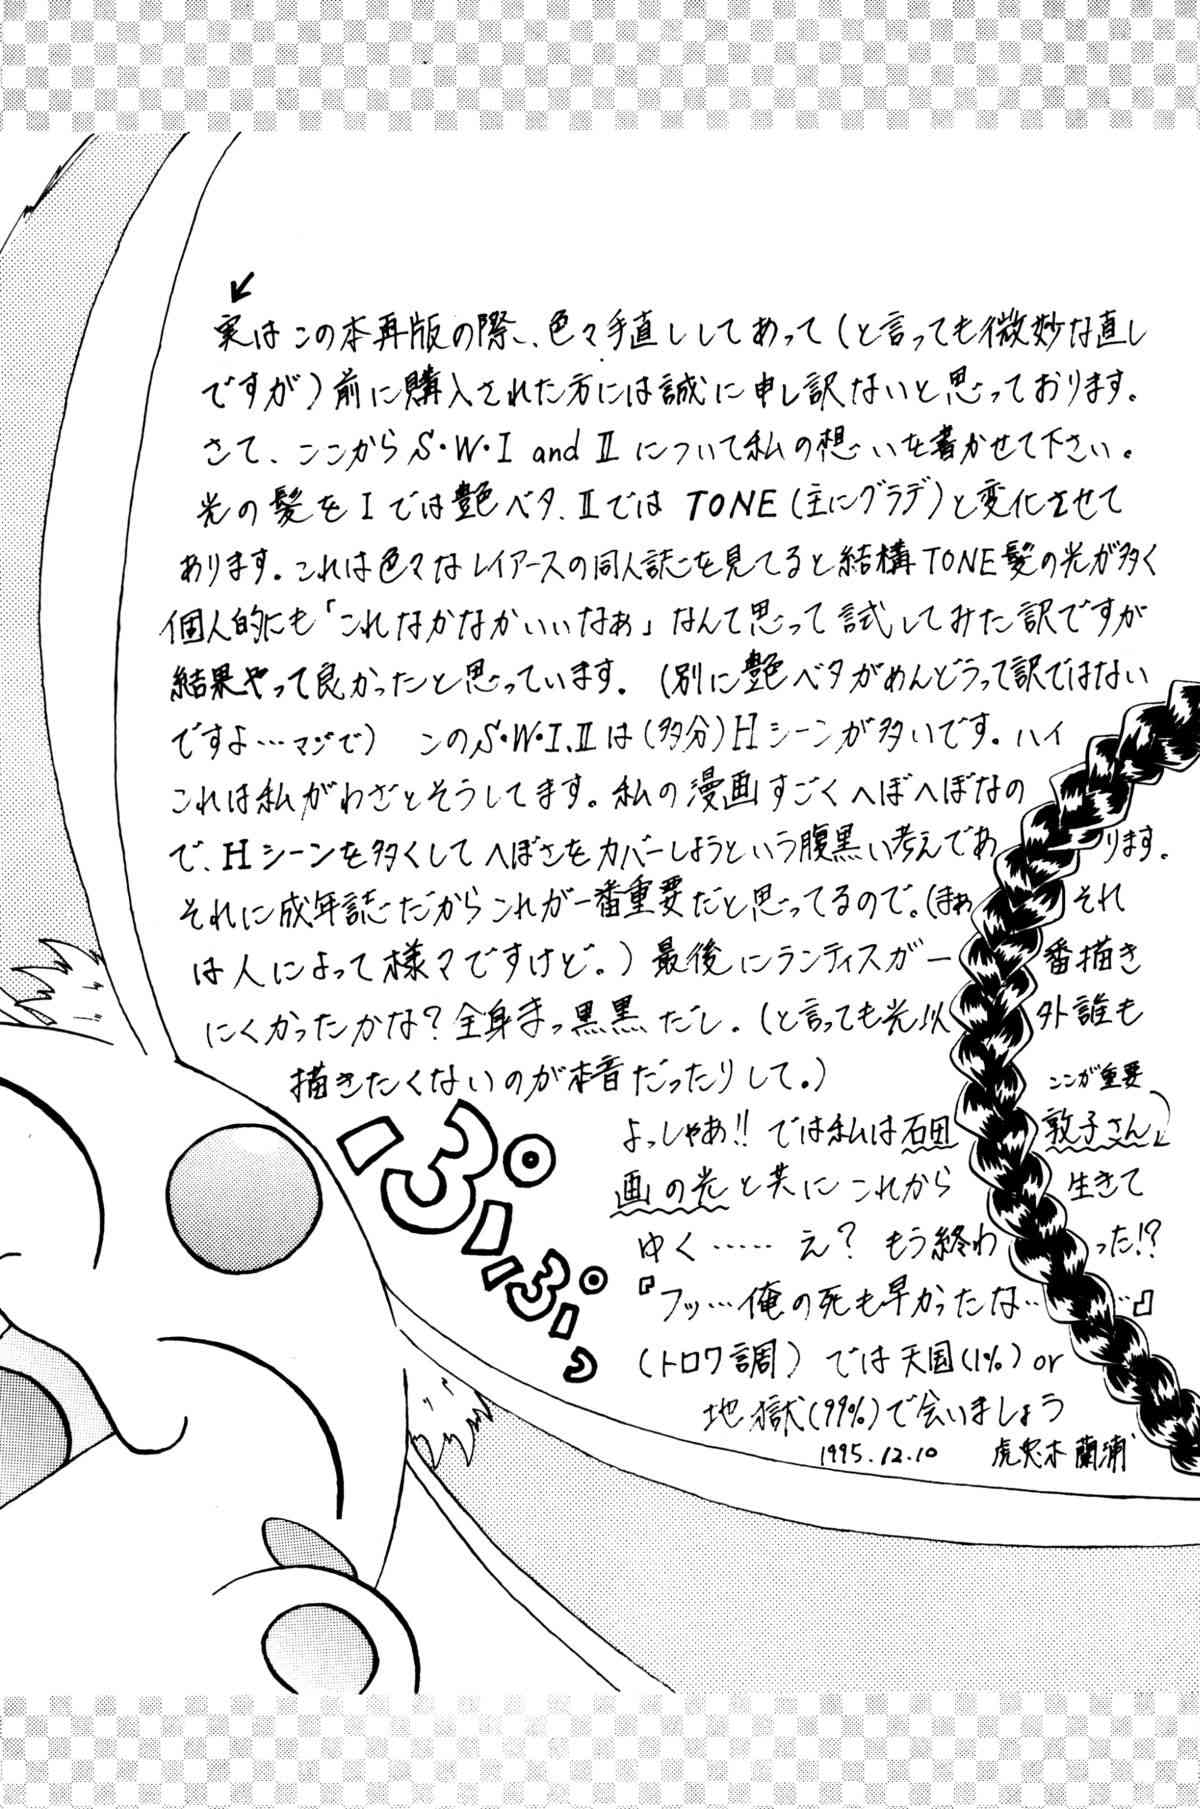 実はこの本再版の際、色々手直ししてあって(と言っても微妙な直し
ですが)前に購入された方には誠に申し訳ないと思っております。
さて、ここからS・W・I and IIについて私の想いを書かせて下さい。
光の髪をIでは艶ベタ、IIではTONE(主にグラデ)と変化させて
あります。これは色々なレイアースの同人誌を見てると結構TONE髪の光が多く
個人的にも「これなかなかいいなぁ」なんて思って試してみた訳ですが
結果やって良かったと思っています。(別に艶ベタがめんどうって訳ではない
ですよ…マジで) このS・W・I、IIは(多分)Hシーンが多いです。ハイ
これは私がわざとそうしてます。私の漫画すごくへぼへぼなの
で、Hシーンを多くしてへぼさをカバーしようという腹黒い考えであります。
それに成年誌だからこれが一番重要だと思ってるので。(まぁそれ
は人によって様々ですけど。)最後にランティスが一番描き
にくかったかな?全身まっ黒黒だし。(と言っても光以外誰も
描きたくないのが本音だったりして。)
ココが重要
よっしゃあ!!では私は石田敦子さん
画の光と共にこれから生きて
ゆく…… え? もう終わった!?
『フッ…俺の死も早かったな‥‥』
(トロワ調) では天国(1%)or
地獄(99%)で会いましょう
1995.12.10 虎兜木蘭浦
ぷぷぷっ